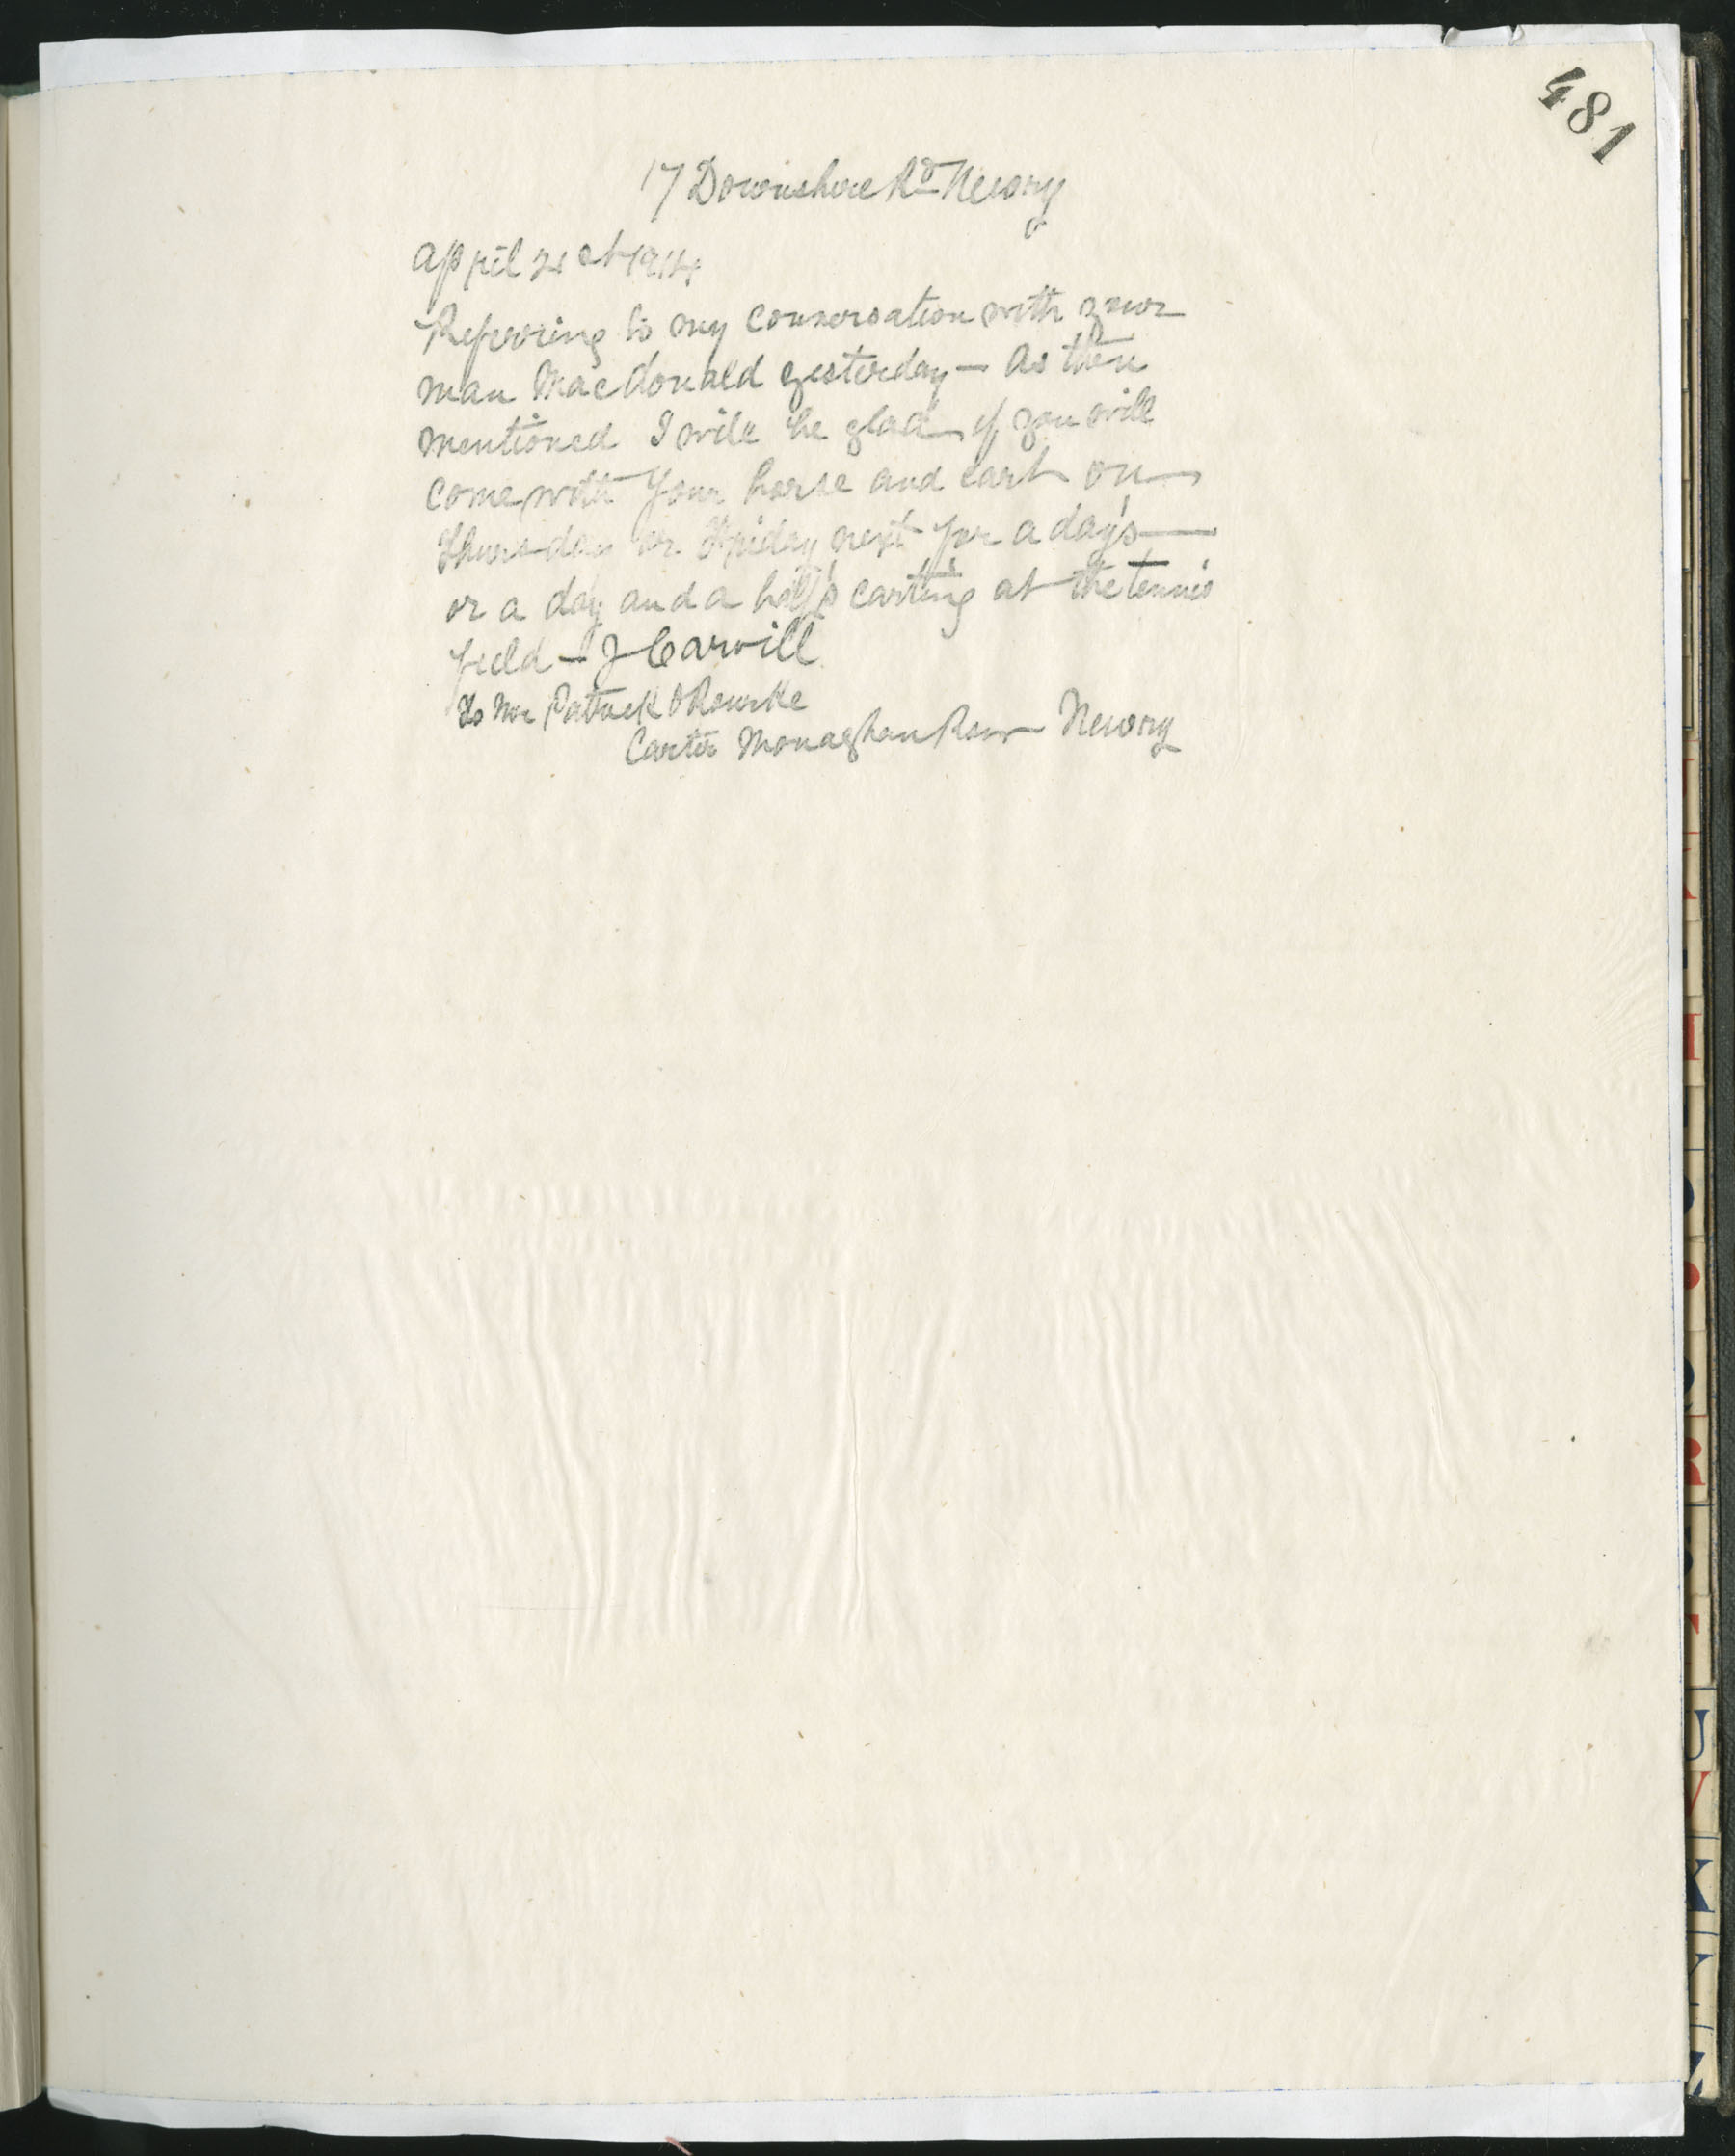 481
17 Downshire Rd Newry
April 21st 1914
Referring to my conversation with your
man MacDonald yesterday — As then
mentioned I will be glad if you will
come with your horse and cart on
Thursday or Friday next for a day's
or a day and a half's carting at the tennis
field — J Carvill
To Mr Patrick O'Rourke
Carter Monaghan Row Newry
R
U
V
X
Y
Z